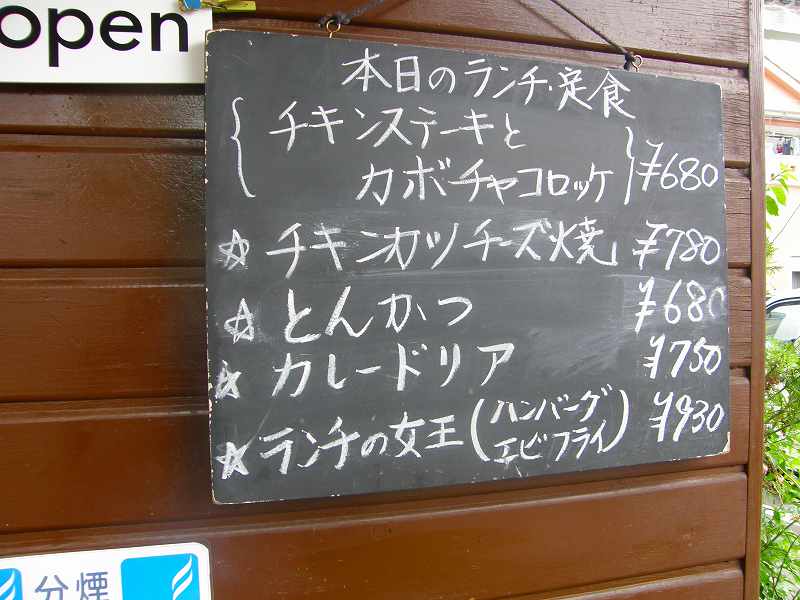 open
本日のランチ・定食
チキンステーキと
カボチャコロッケ ¥680
☆ チキンカツチーズ焼 ¥780
☆ とんかつ ¥680
☆ カレードリア ¥750
☆ ランチの女王 (ハンバーグ エビフライ) ¥930
分煙